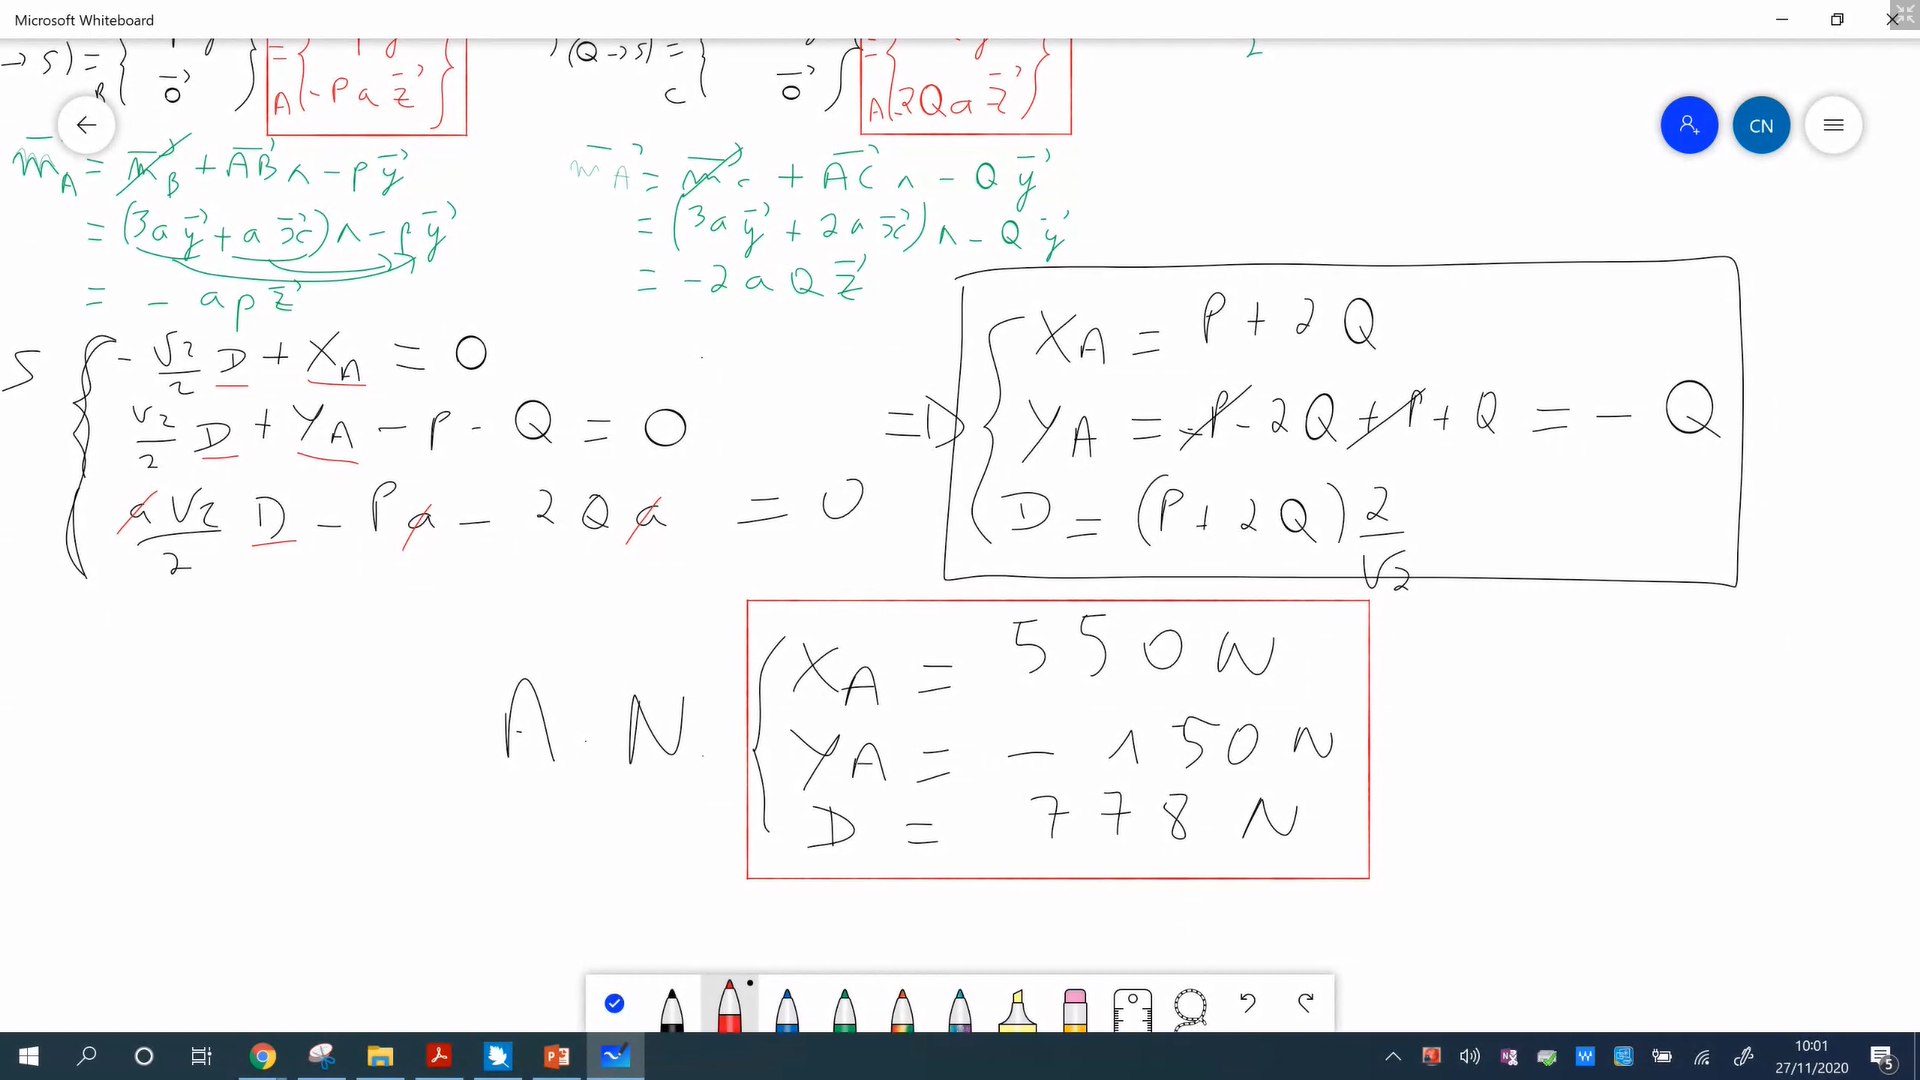 Microsoft Whiteboard
→ S) = { 0⃗ } = A{ -P a z⃗ }
(Q → S) = { 0⃗ } = A{ -2Q a z⃗ }
B
C
CN
m⃗A = m⃗B + AB⃗ ∧ - P y⃗
= (3a y⃗ + a x⃗) ∧ - P y⃗
= - a p z⃗
m⃗A = m⃗c + AC⃗ ∧ - Q y⃗
= (3a y⃗ + 2a x⃗) ∧ - Q y⃗
= - 2 a Q z⃗
S { - √2/2 D + XA = 0
√2/2 D + YA - P - Q = 0
a √2/2 D - P a - 2 Q a = 0
=D { XA = P + 2 Q
YA = -P - 2Q + P + Q = - Q
D = (P + 2 Q) 2/√2
A. N. { XA = 550 N
YA = - 150 N
D = 778 N
10:01
27/11/2020
5